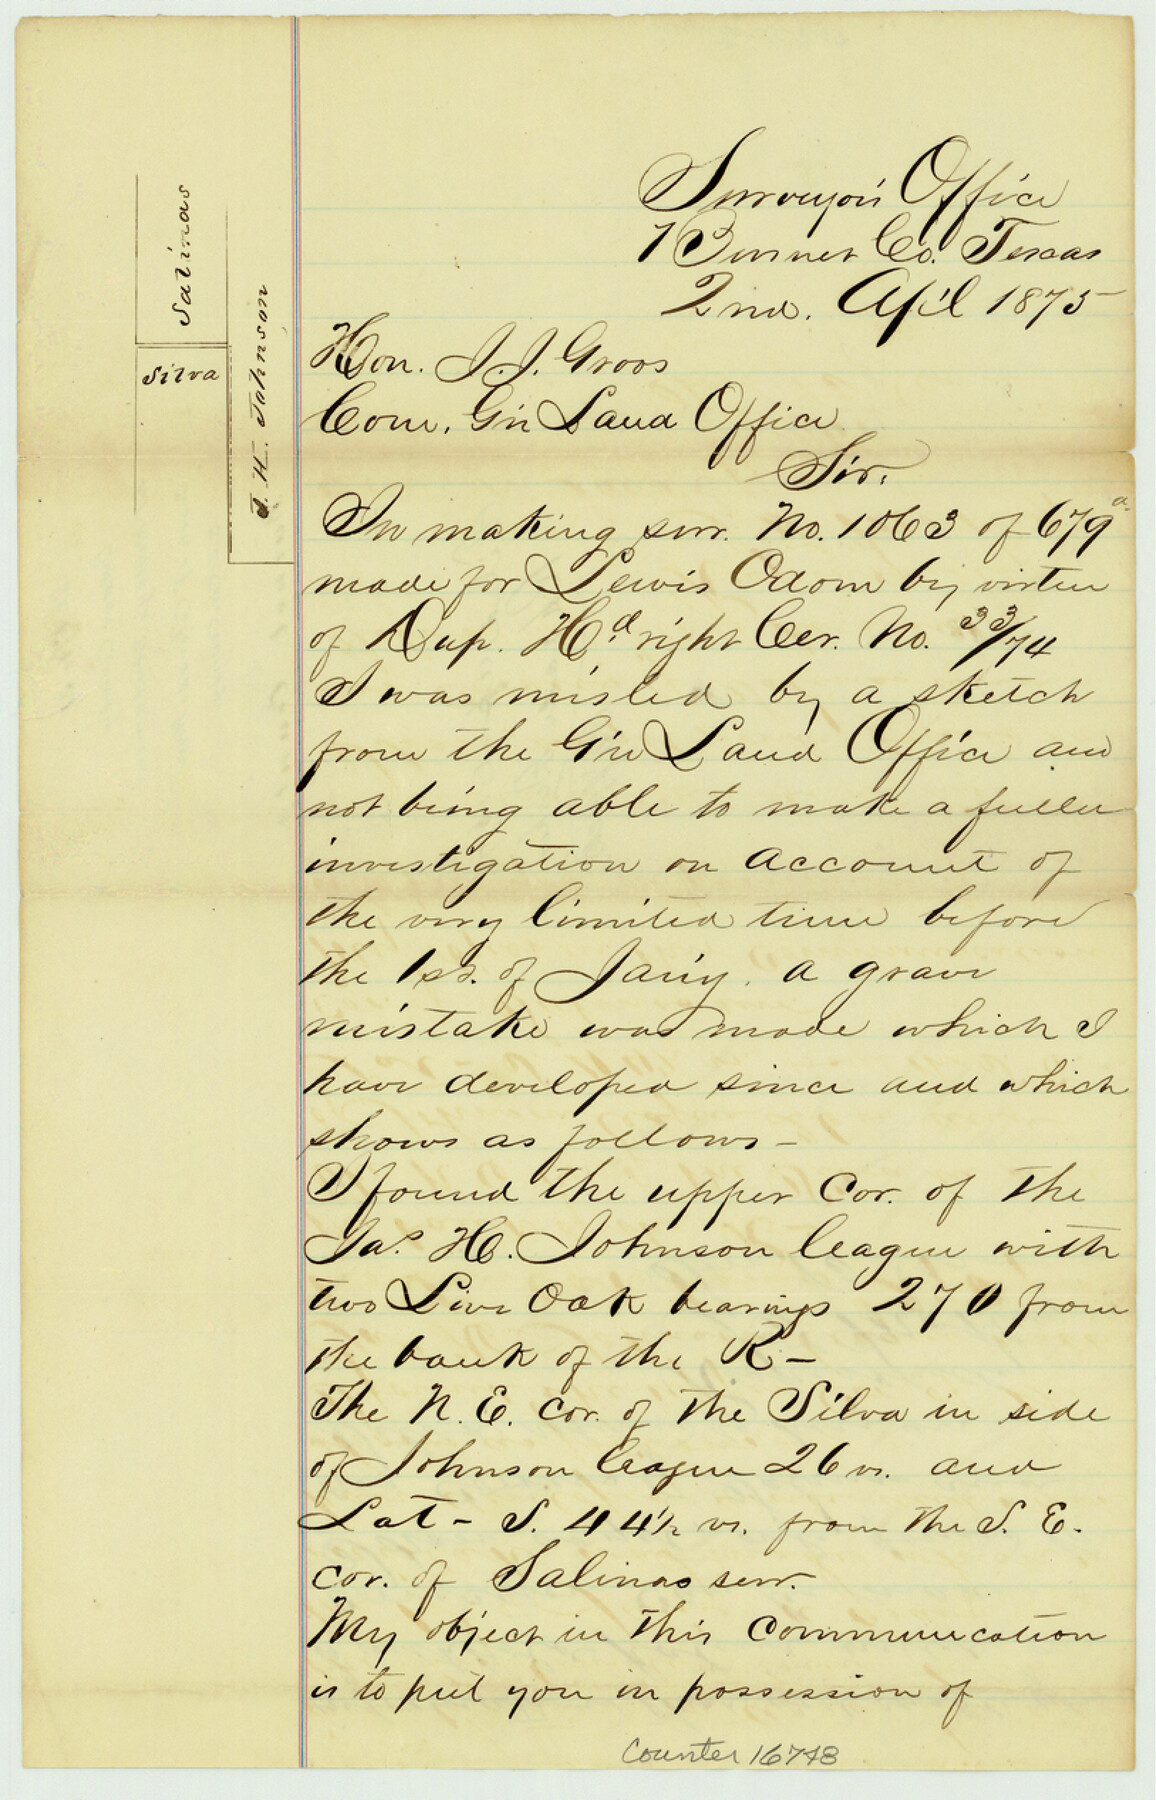 Salinas
Silva
J. H. Johnson
Surveyor's Office
Burnet Co. Texas
2nd. April 1875
Hon. J. J. Groos
Com. Gn Land Office
Sir.
In making surr. No. 1063 of 679 a.
made for Lewis Odom by virtue
of Dup. Hd. right Cer. No. 33/74
I was misled by a sketch
from the Gn Land Office and
not being able to make a fuller
investigation on account of
the very limited time before
the 1st. of Jany. a grave
mistake was made which I
have developed since and which
shows as follows –
I found the upper Cor. of the
Jas. H. Johnson league with
two Live Oak bearings 270 from
the bank of the R –
The N. E. Cor. of the Silva in side
of Johnson league 26 vs. and
Lat – S. 44 1/2 vs. from the S. E.
cor. of Salinas surr.
My object in this Communication
is to put you in possession of
Counter 16748